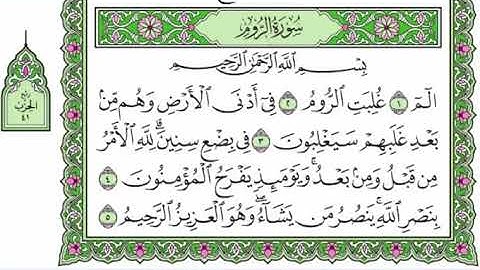 سُورَةُ الرُّومِ
بِسْمِ اللَّهِ الرَّحْمَٰنِ الرَّحِيمِ
الٓمٓ ١ غُلِبَتِ الرُّومُ ٢ فِىٓ أَدْنَى الْأَرْضِ وَهُم مِّنۢ
بَعْدِ غَلَبِهِمْ سَيَغْلِبُونَ ٣ فِى بِضْعِ سِنِينَ ۗ لِلَّهِ الْأَمْرُ
مِن قَبْلُ وَمِنۢ بَعْدُ ۚ وَيَوْمَئِذٍ يَفْرَحُ الْمُؤْمِنُونَ ٤
بِنَصْرِ اللَّهِ ۚ يَنصُرُ مَن يَشَآءُ ۖ وَهُوَ الْعَزِيزُ الرَّحِيمُ ٥
ربع
الحزب
٤١